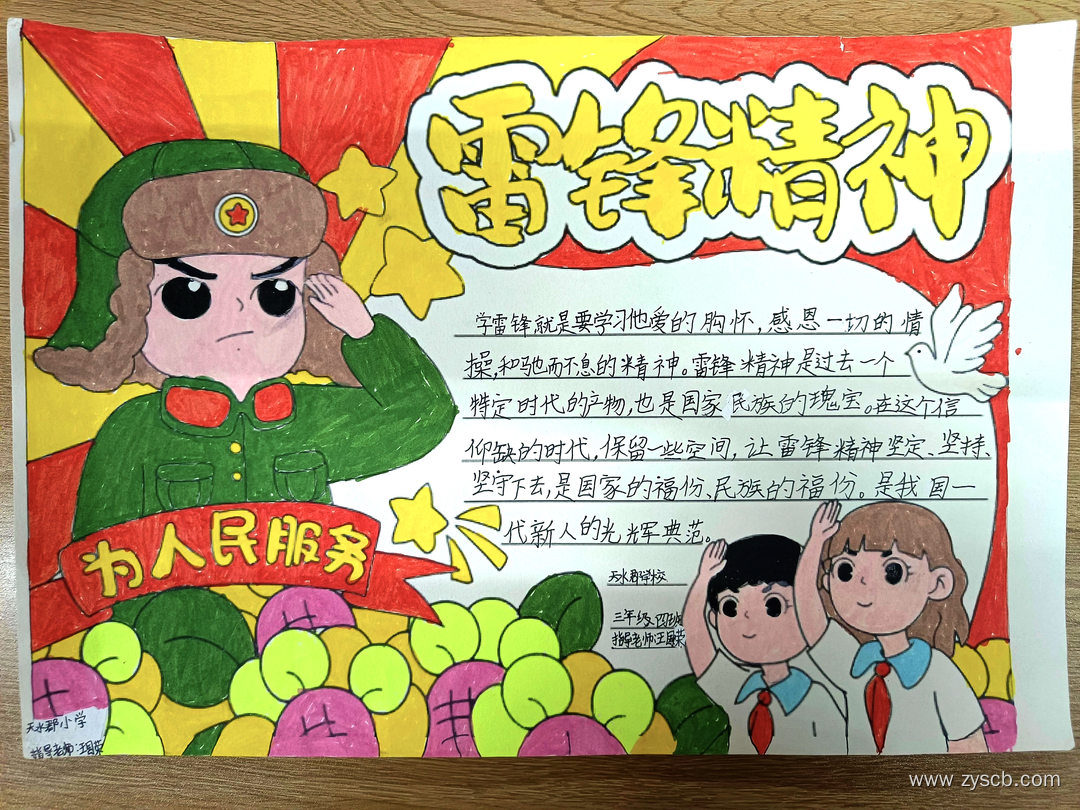 雷锋精神
学雷锋就是要学习他爱的胸怀,感恩一切的情
操,和驰而不息的精神。雷锋精神是过去一个
特定时代的产物,也是国家民族的瑰宝。在这个信
仰缺的时代,保留一些空间,让雷锋精神坚定、坚持、
坚守下去,是国家的福份、民族的福份。是我国一
代新人的光辉典范。
为人民服务
天水郡学校
三年级四班
指导老师:王国荣
天水郡小学
指导老师:王国荣
www.zyscb.com